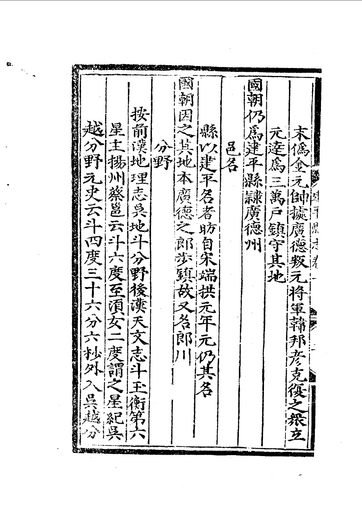 末僞金元帥據廣德叛元將軍韓邦彥克復之衆立
元逵爲三萬戶鎮守其地
國朝仍爲建平縣隸廣德州
邑名
縣以建平名者昉自宋端拱元年元仍其名
國朝因之其地本廣德之郎步鎮故又名郎川
分野
按前漢地理志吳地斗分野後漢天文志斗玉衡第六
星主揚州蔡邕云斗六度至須女二度謂之星紀吳
越分野元史云斗四度三十六分六秒外入吳越分